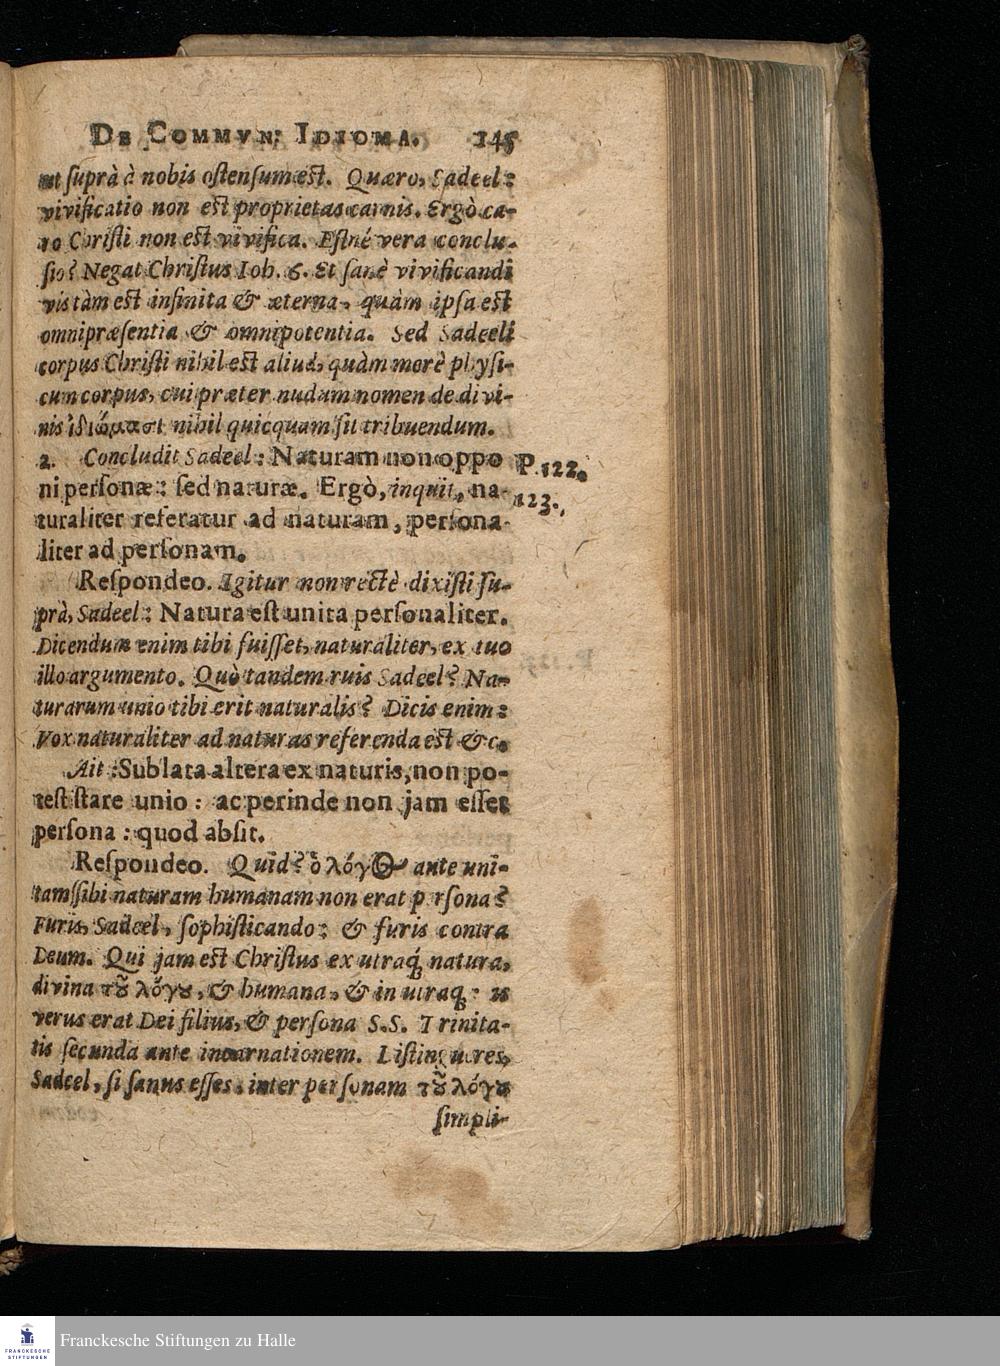 DE COMMVN: IDIOMA. 145
ut suprà à nobis ostensum est. Quæro, Sadeel:
vivificatio non est proprietas carnis. Ergò ca-
ro Christi non est vivifica. Estné vera conclu-
sio? Negat Christus Ioh. 6. Et sanè vivificandi
vis tàm est infinita & æterna, quàm ipsa est
omnipræsentia & omnipotentia. Sed Sadeeli
corpus Christi nihil est aliud, quàm merè physi-
cum corpus, cui præter nudum nomen de divi-
nis ἰδιώμασι nihil quicquam sit tribuendum.
2. Concludit Sadeel: Naturam non oppo P. 122.
ni personæ: sed naturæ. Ergò, inquit, na- 123.,
turaliter referatur ad naturam, persona-
liter ad personam.
Respondeo. Igitur non rectè dixisti su-
prà, Sadeel: Natura est unita personaliter.
Dicendum enim tibi fuisset, naturaliter, ex tuo
illo argumento. Quò tandem ruis Sadeel? Na-
turarum unio tibi erit naturalis? Dicis enim:
Vox naturaliter ad naturas referenda est &c.
Ait: Sublata altera ex naturis, non po-
test stare unio: ac perinde non jam esset
persona: quod absit.
Respondeo. Quid? ὁ λόγος ante uni-
tam sibi naturam humanam non erat p rsona?
Furis, Sadeel, sophisticando: & furis contra
Deum. Qui jam est Christus ex utraq́; natura,
divina τοῦ λόγου, & humana, & in utraq;: is
verus erat Dei filius, & persona S.S. Trinita-
tis secunda ante incarnationem. Distingueres,
Sadeel, si sanus esses: inter personam τοῦ λόγου
simpli-
FRANCKESCHE
STIFTUNGEN
Franckesche Stiftungen zu Halle